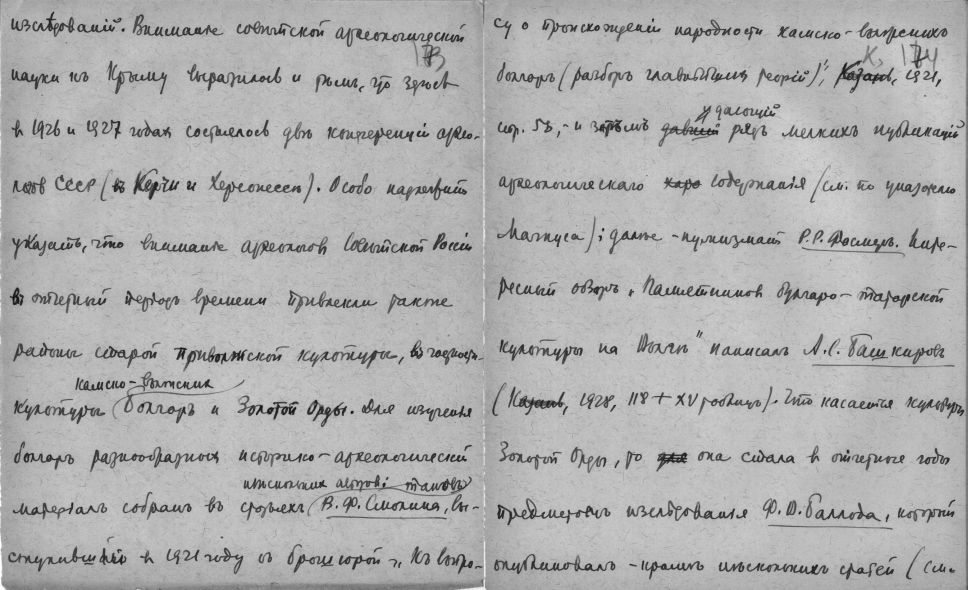 173
изслѣдованій. Вниманіе совѣтской археологической
науки къ Крыму выразилось и тѣмъ, что здѣсь
въ 1926 и 1927 годах состоялось двѣ конференціи архео-
логовъ СССР (въ Керчи и Херсонесе). Особо надлежитъ
указать, что вниманіе археологов Совѣтской Россіи
въ отчетный періодъ времени привлекли также
районы старой приволжской культуры, въ частности-
камско-волжских
культуры болгаръ и Золотой Орды. Для изученія
болгаръ разнообразный историко-археологическій
нѣсколькихъ
матеріалъ собранъ въ статьяхъ В. Ф. Смолина, вы-
ступившаго въ 1921 году съ брошюрой „Къ вопро-
К, 174
су о происхожденіи народности камско-волжскихъ
болгаръ (разборъ главнѣйших теорій)", Казань, 1921,
дающій
стр. 58, - и затѣмъ рядъ мелкихъ публикацій
археологическаго содержанія (см. по указателю
Магнуса); далѣе - нумизматъ Р. Р. Фасмеръ. Инте-
ресный обзоръ „Памятников булгаро-татарской
культуры на Волгѣ" написалъ А. С. Башкировъ
(Казань, 1928, 118 + XV таблицъ). Что касается культуры
Золотой Орды, то она стала в отчетные годы
предметомъ изслѣдованія Ф. В. Баллода, который
опубликовалъ - кромѣ нѣсколькихъ статей (см.